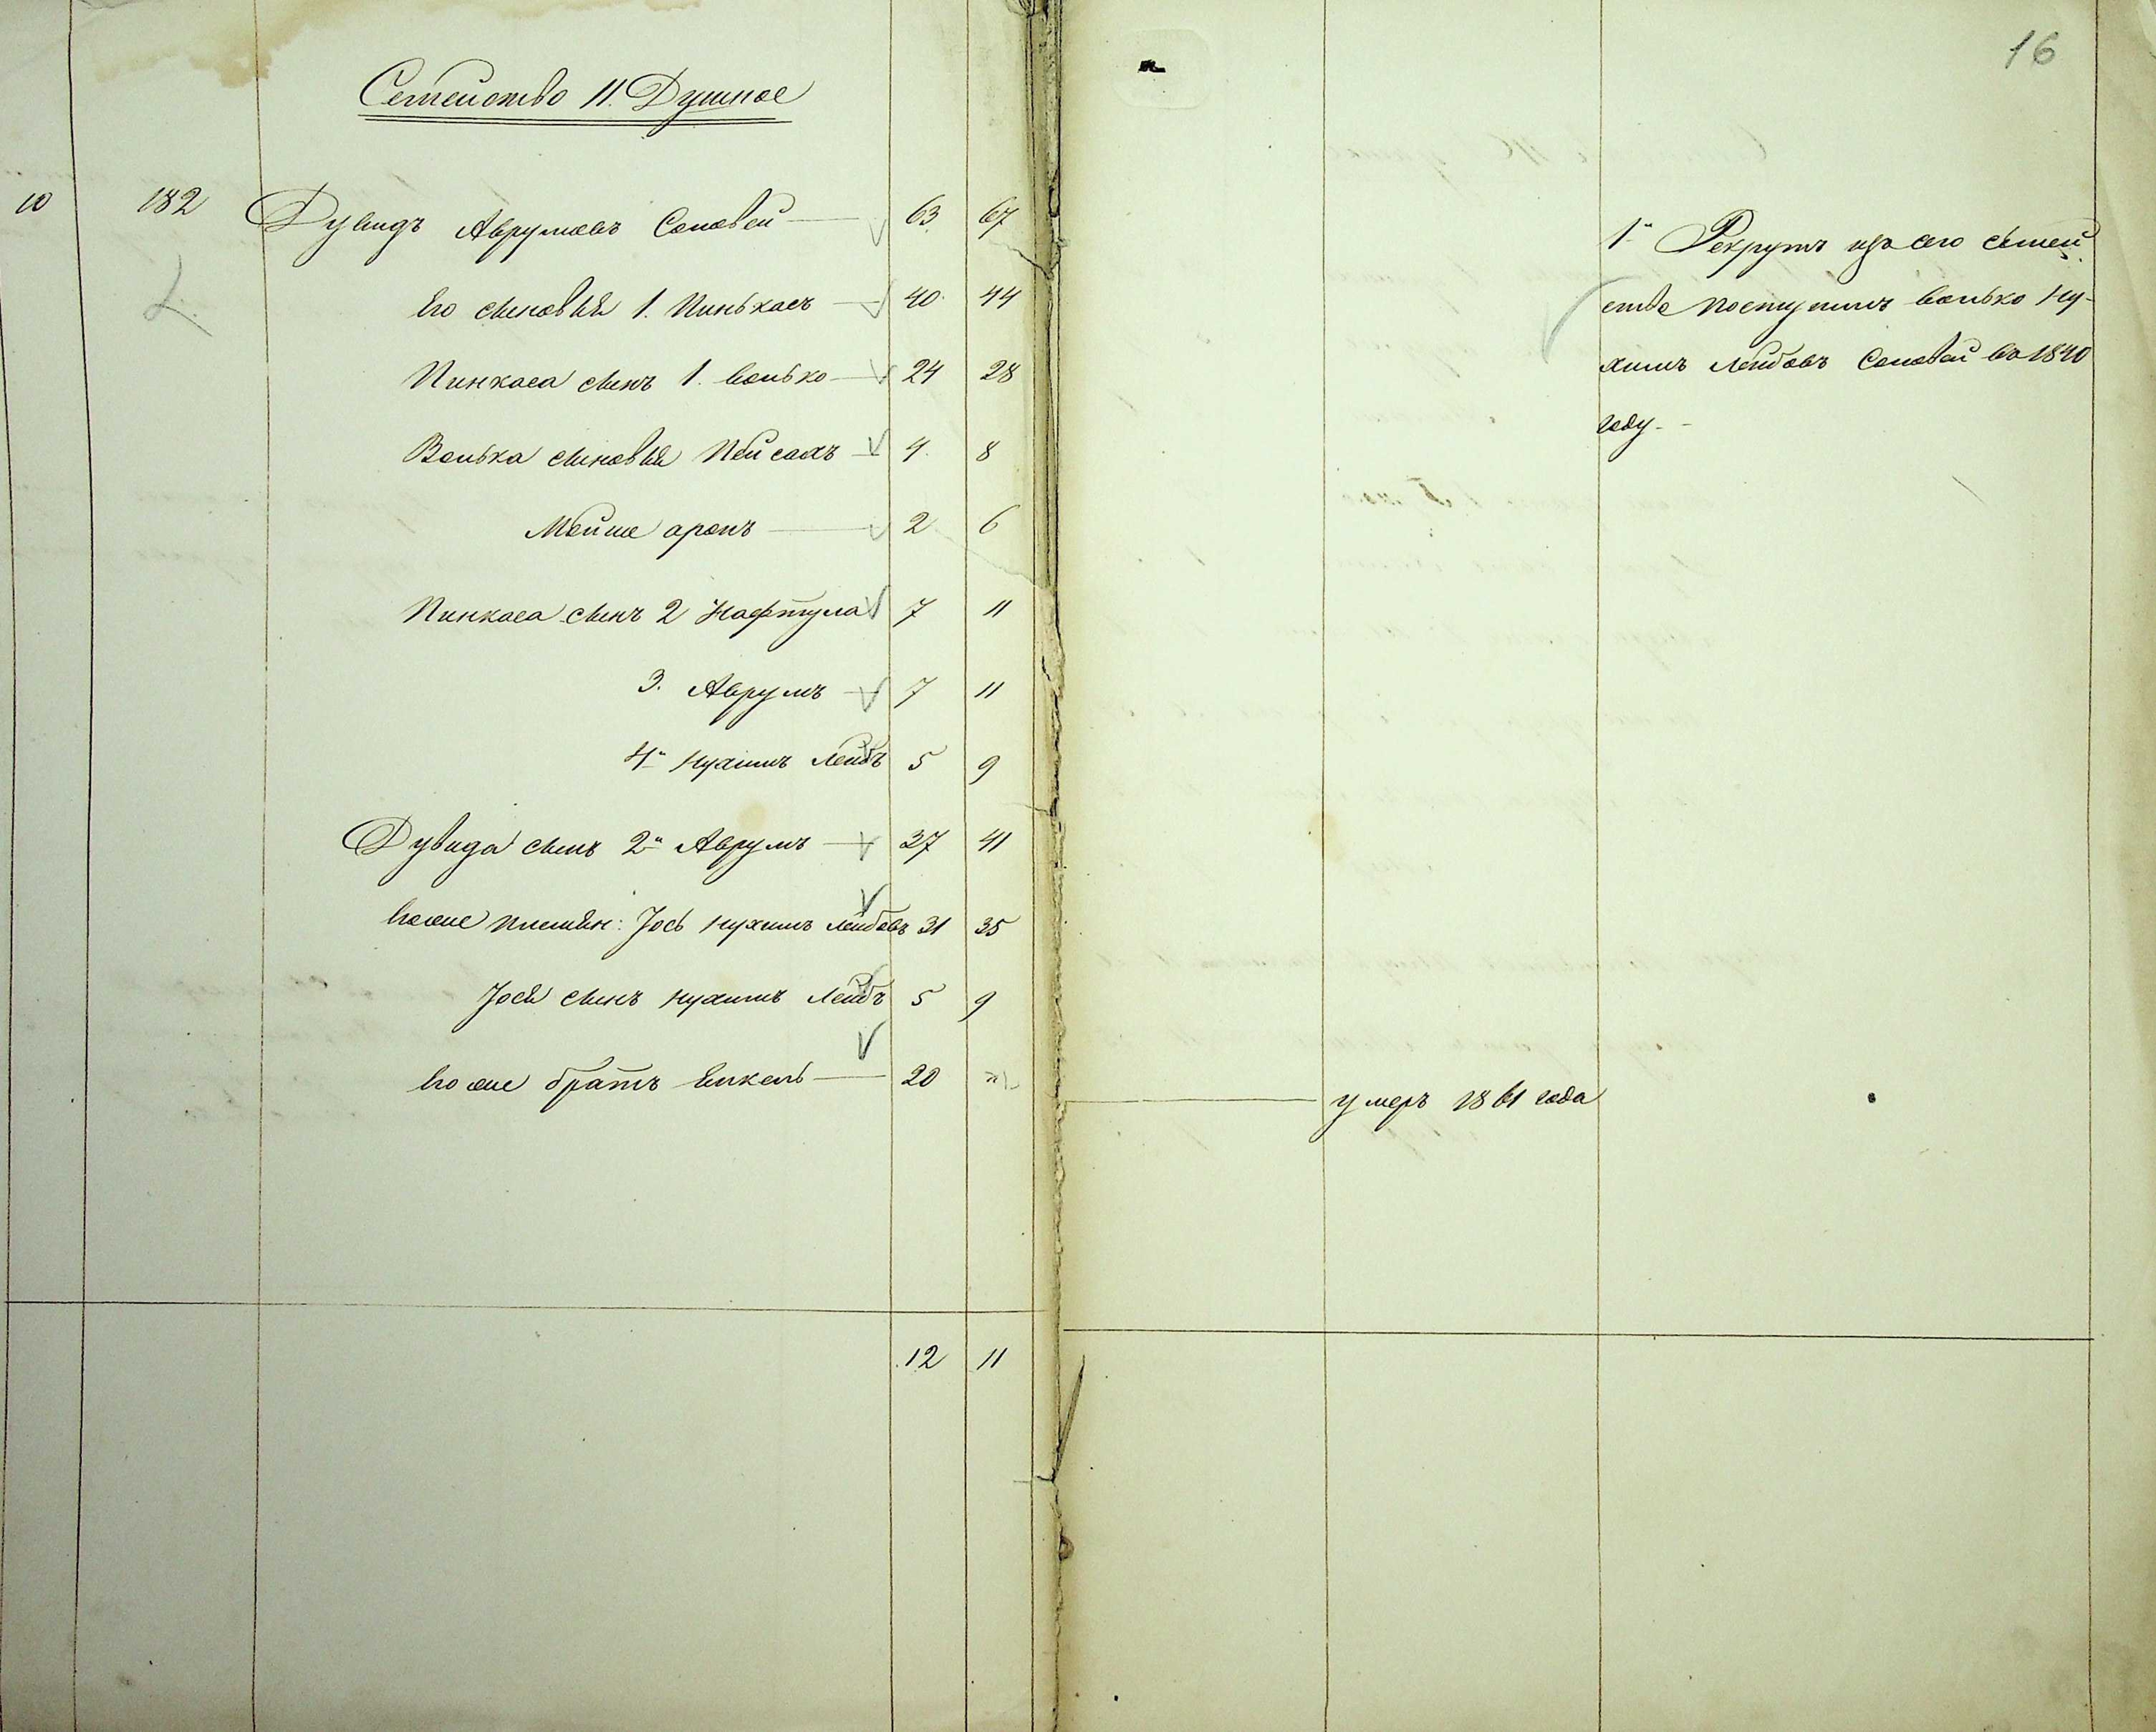 16
Семейство 11. Душное
10 182 Дувидъ Аврумовъ Соловей 63 67
Его сыновья 1. Пинькасъ 40 44
Пинкаса сынъ 1. Волько 24 28
Волька сыновья Пейсахъ 4 8
Мойше аронъ 2 6
Пинкаса сынъ 2 Нафтула 7 11
3. Аврумъ 7 11
4й Нухимъ Лейбъ 5 9
Дувида сынъ 2й Аврумъ 37 41
Его же племян: Іось Нухимъ Лейбовъ 31 35
Іося сынъ Нухимъ Лейбъ 5 9
Его же братъ Янкель 20
умеръ 1861 года
12 11
1й Рекрутъ изъ сего семей
ства поступилъ Волько Ну-
химъ Лейбовъ Соловей въ 1840
году.